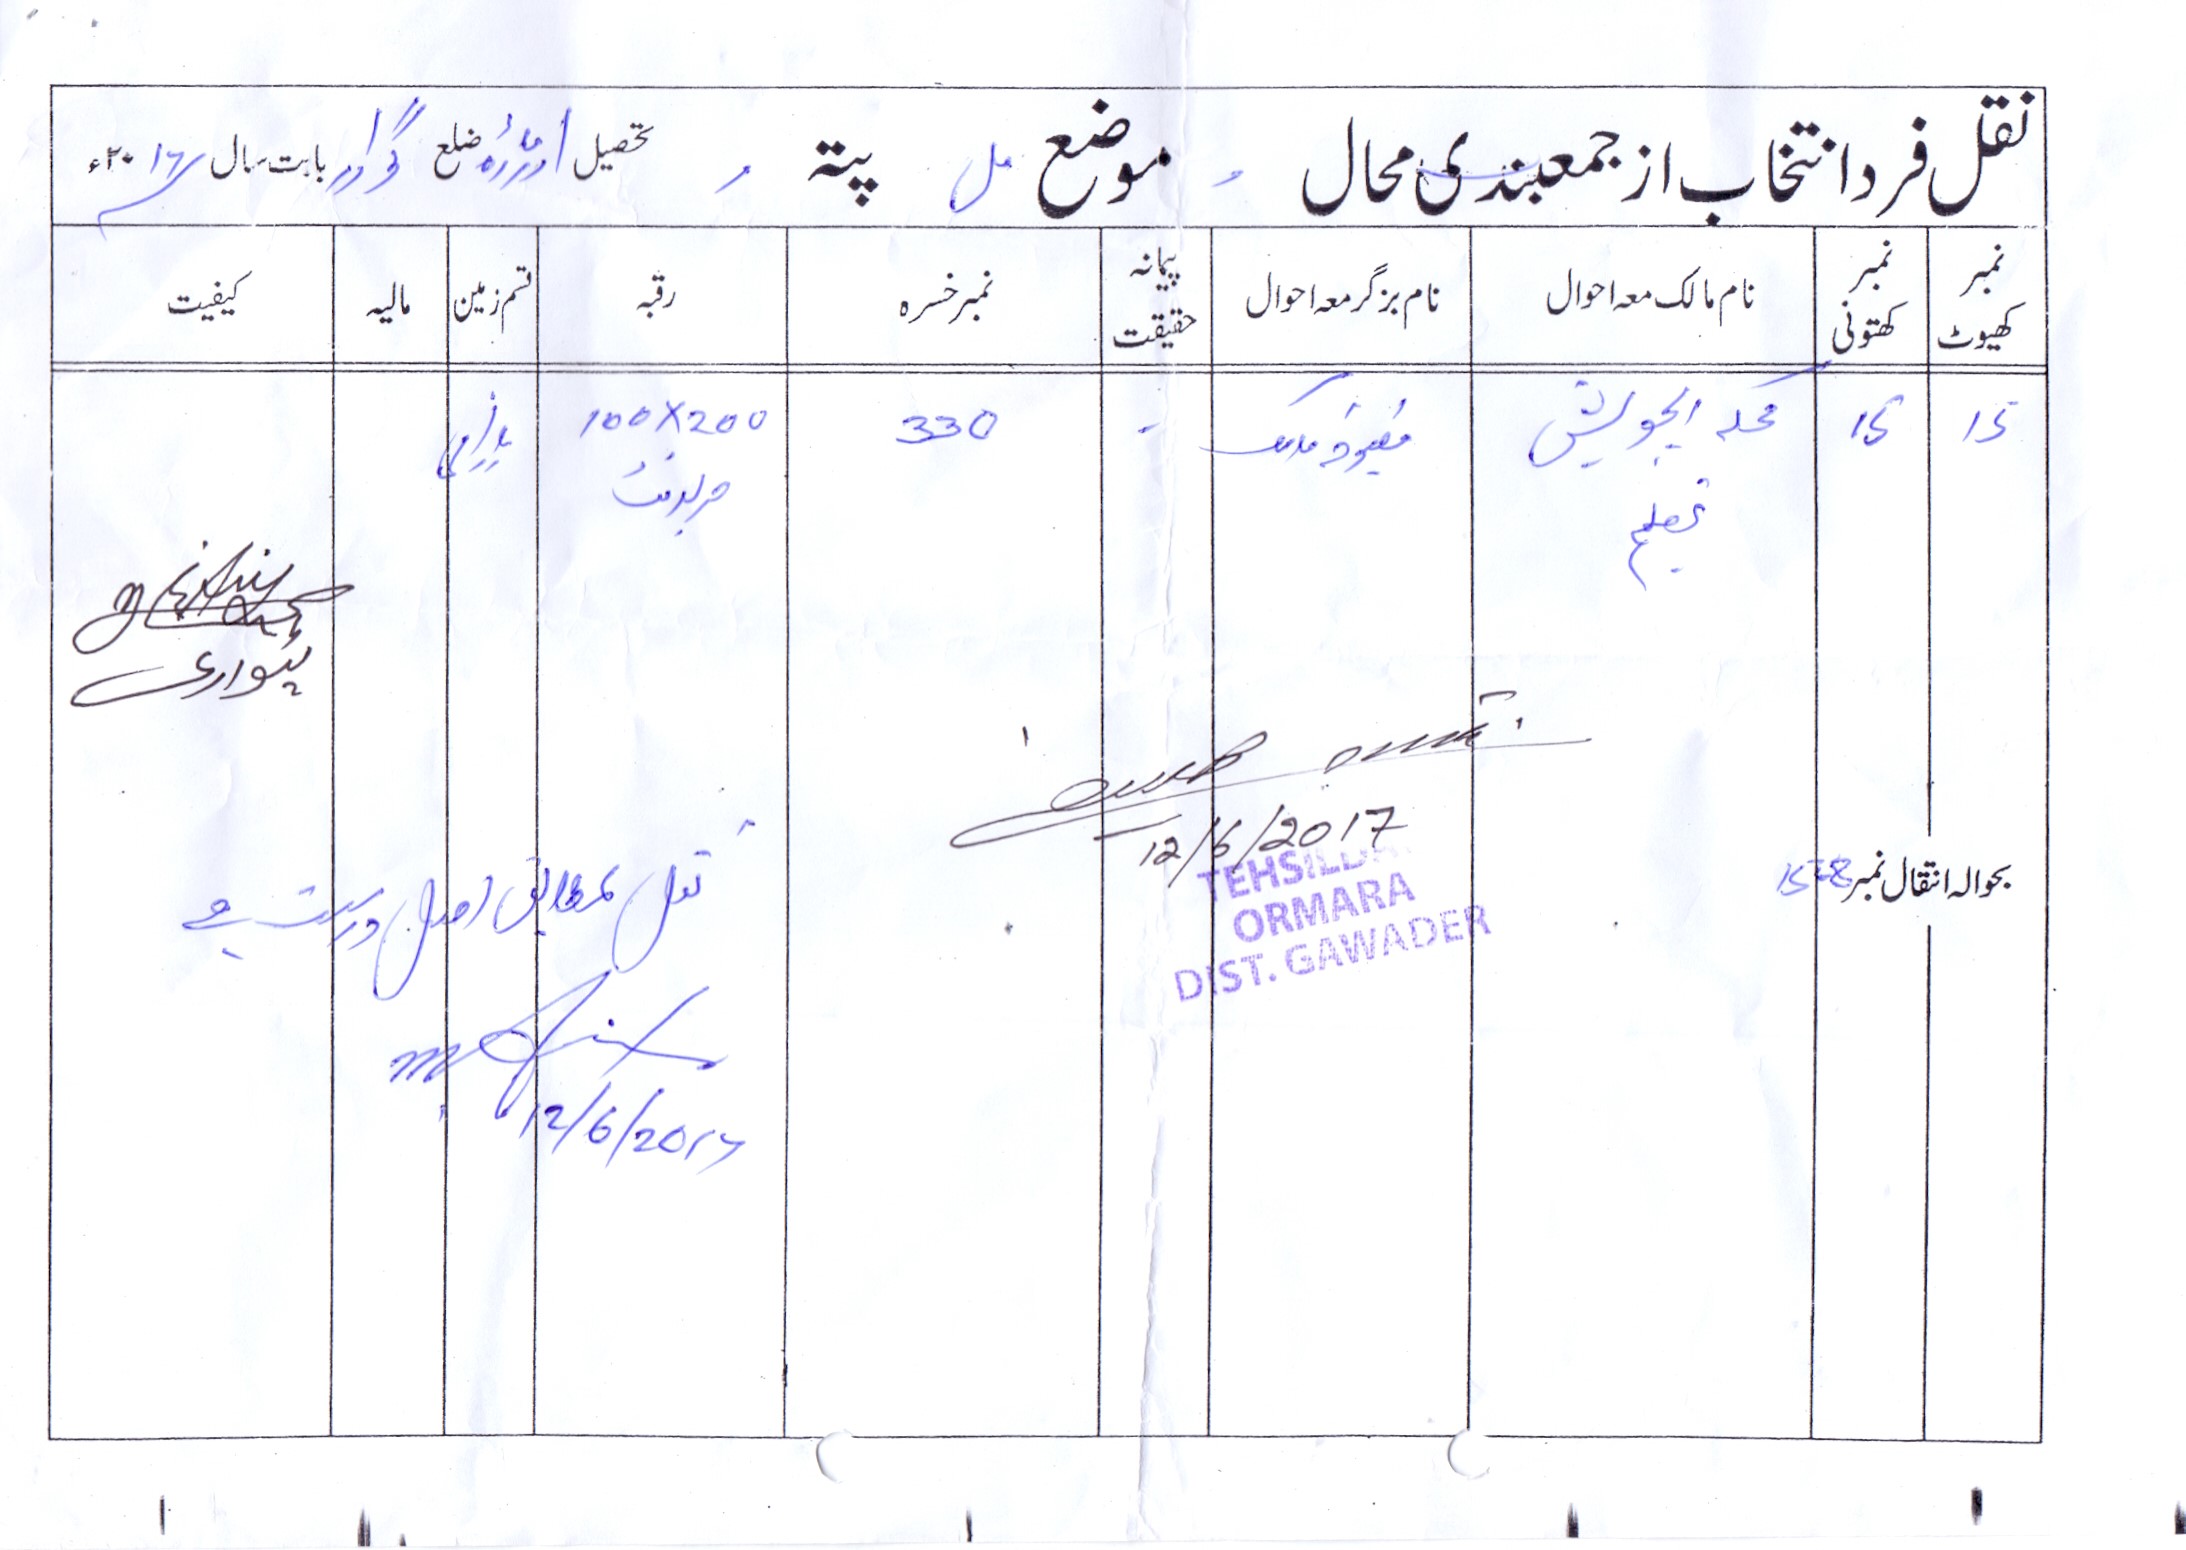 نقل فرد انتخاب از جمعبندی محال موضع مل پتہ تحصیل اورماڑہ ضلع گوادر بابت سال ۲۰۱۶ء
نمبر کھیوٹ
نمبر کھتونی
نام مالک معہ احوال
نام بزگر معہ احوال
پیمانہ حقیقت
نمبر خسرہ
رقبہ
قسم زمین
مالیہ
کیفیت
15
15
محکمہ ایجوکیشن
تعلیم
مقبوضہ مالک
330
100X200
مربع فٹ
بارانی
پٹواری
12/6/2017
TEHSILDAR
ORMARA
DIST. GAWADER
بحوالہ انتقال نمبر
نقل بمطابق اصل درست ہے
12/6/2017